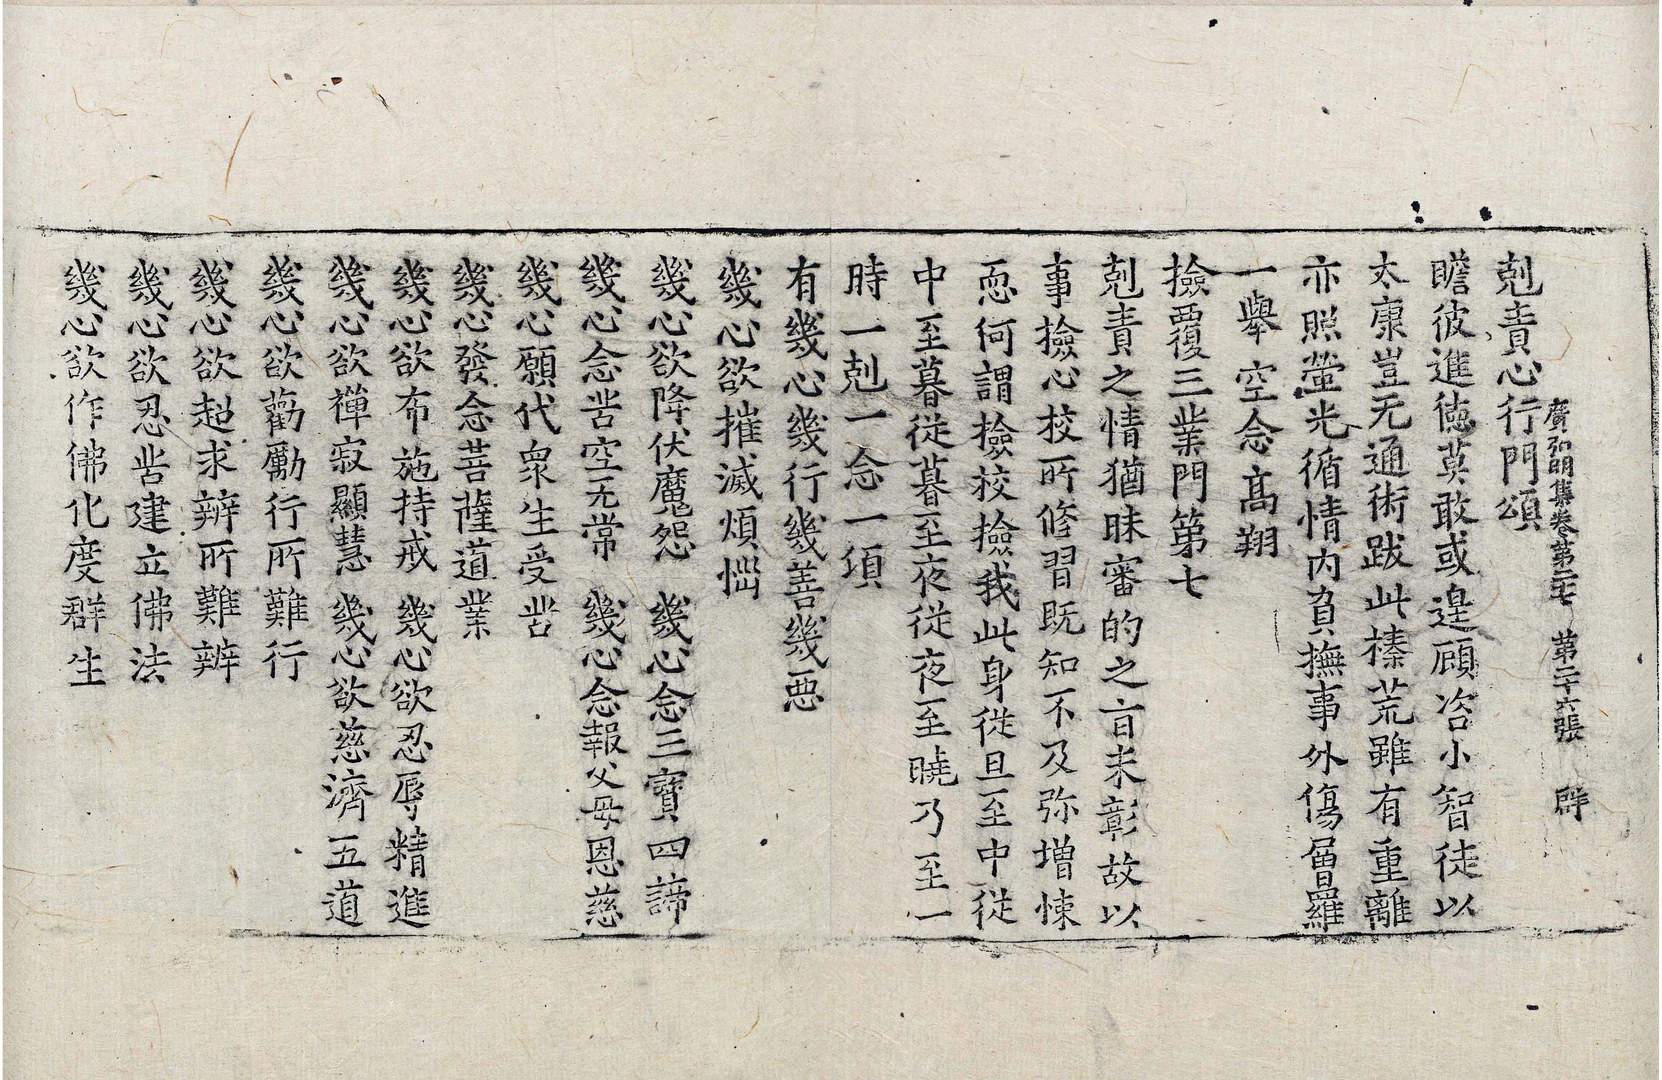 廣弘明集卷第二十七 第二十六張 群
剋責心行門頌
瞻彼進德莫敢或遑顧咨小智徒以
太康豈无通術跋此榛荒雖有重離
亦照螢光循情內負撫事外傷層羅
一舉空念髙翔
撿覆三業門第七
剋責之情猶昧審的之㫖未彰故以
事撿心校所修習既知不及弥增悚
恧何謂撿校撿我此身從旦至中從
中至暮從暮至夜從夜至曉乃至一
時一剋一念一頃
有幾心幾行幾善幾惡
幾心欲摧滅煩惱
幾心欲降伏魔怨 幾心念三寶四諦
幾心念苦空无常 幾心念報父母恩慈
幾心願代衆生受苦
幾心發念菩薩道業
幾心欲布施持戒 幾心欲忍辱精進
幾心欲禪寂顯慧 幾心欲慈濟五道
幾心欲勸勵行所難行
幾心欲起求辨所難辨
幾心欲忍苦建立佛法
幾心欲作佛化度群生